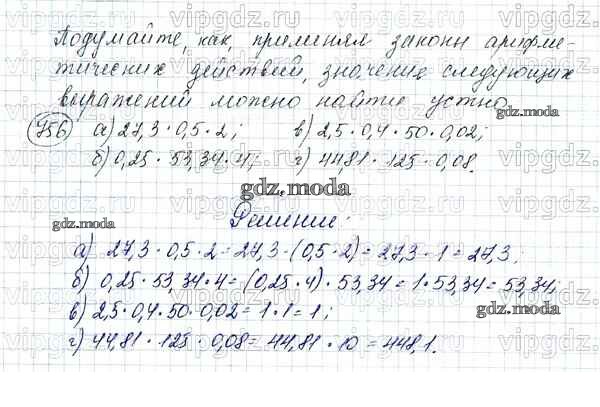 Подумайте, как, применяя законы арифме-
тических действий, значения следующих
выражений можно найти устно
756 а) 27,3 · 0,5 · 2; в) 2,5 · 0,4 · 50 · 0,02;
б) 0,25 · 53,34 · 4; г) 44,81 · 125 · 0,08.
gdz.moda
Решение:
gdz.moda
а) 27,3 · 0,5 · 2 = 27,3 · (0,5 · 2) = 27,3 · 1 = 27,3;
б) 0,25 · 53,34 · 4 = (0,25 · 4) · 53,34 = 1 · 53,34 = 53,34;
в) 2,5 · 0,4 · 50 · 0,02 = 1 · 1 = 1;
gdz.moda
г) 44,81 · 125 · 0,08 = 44,81 · 10 = 448,1.
gdz.moda